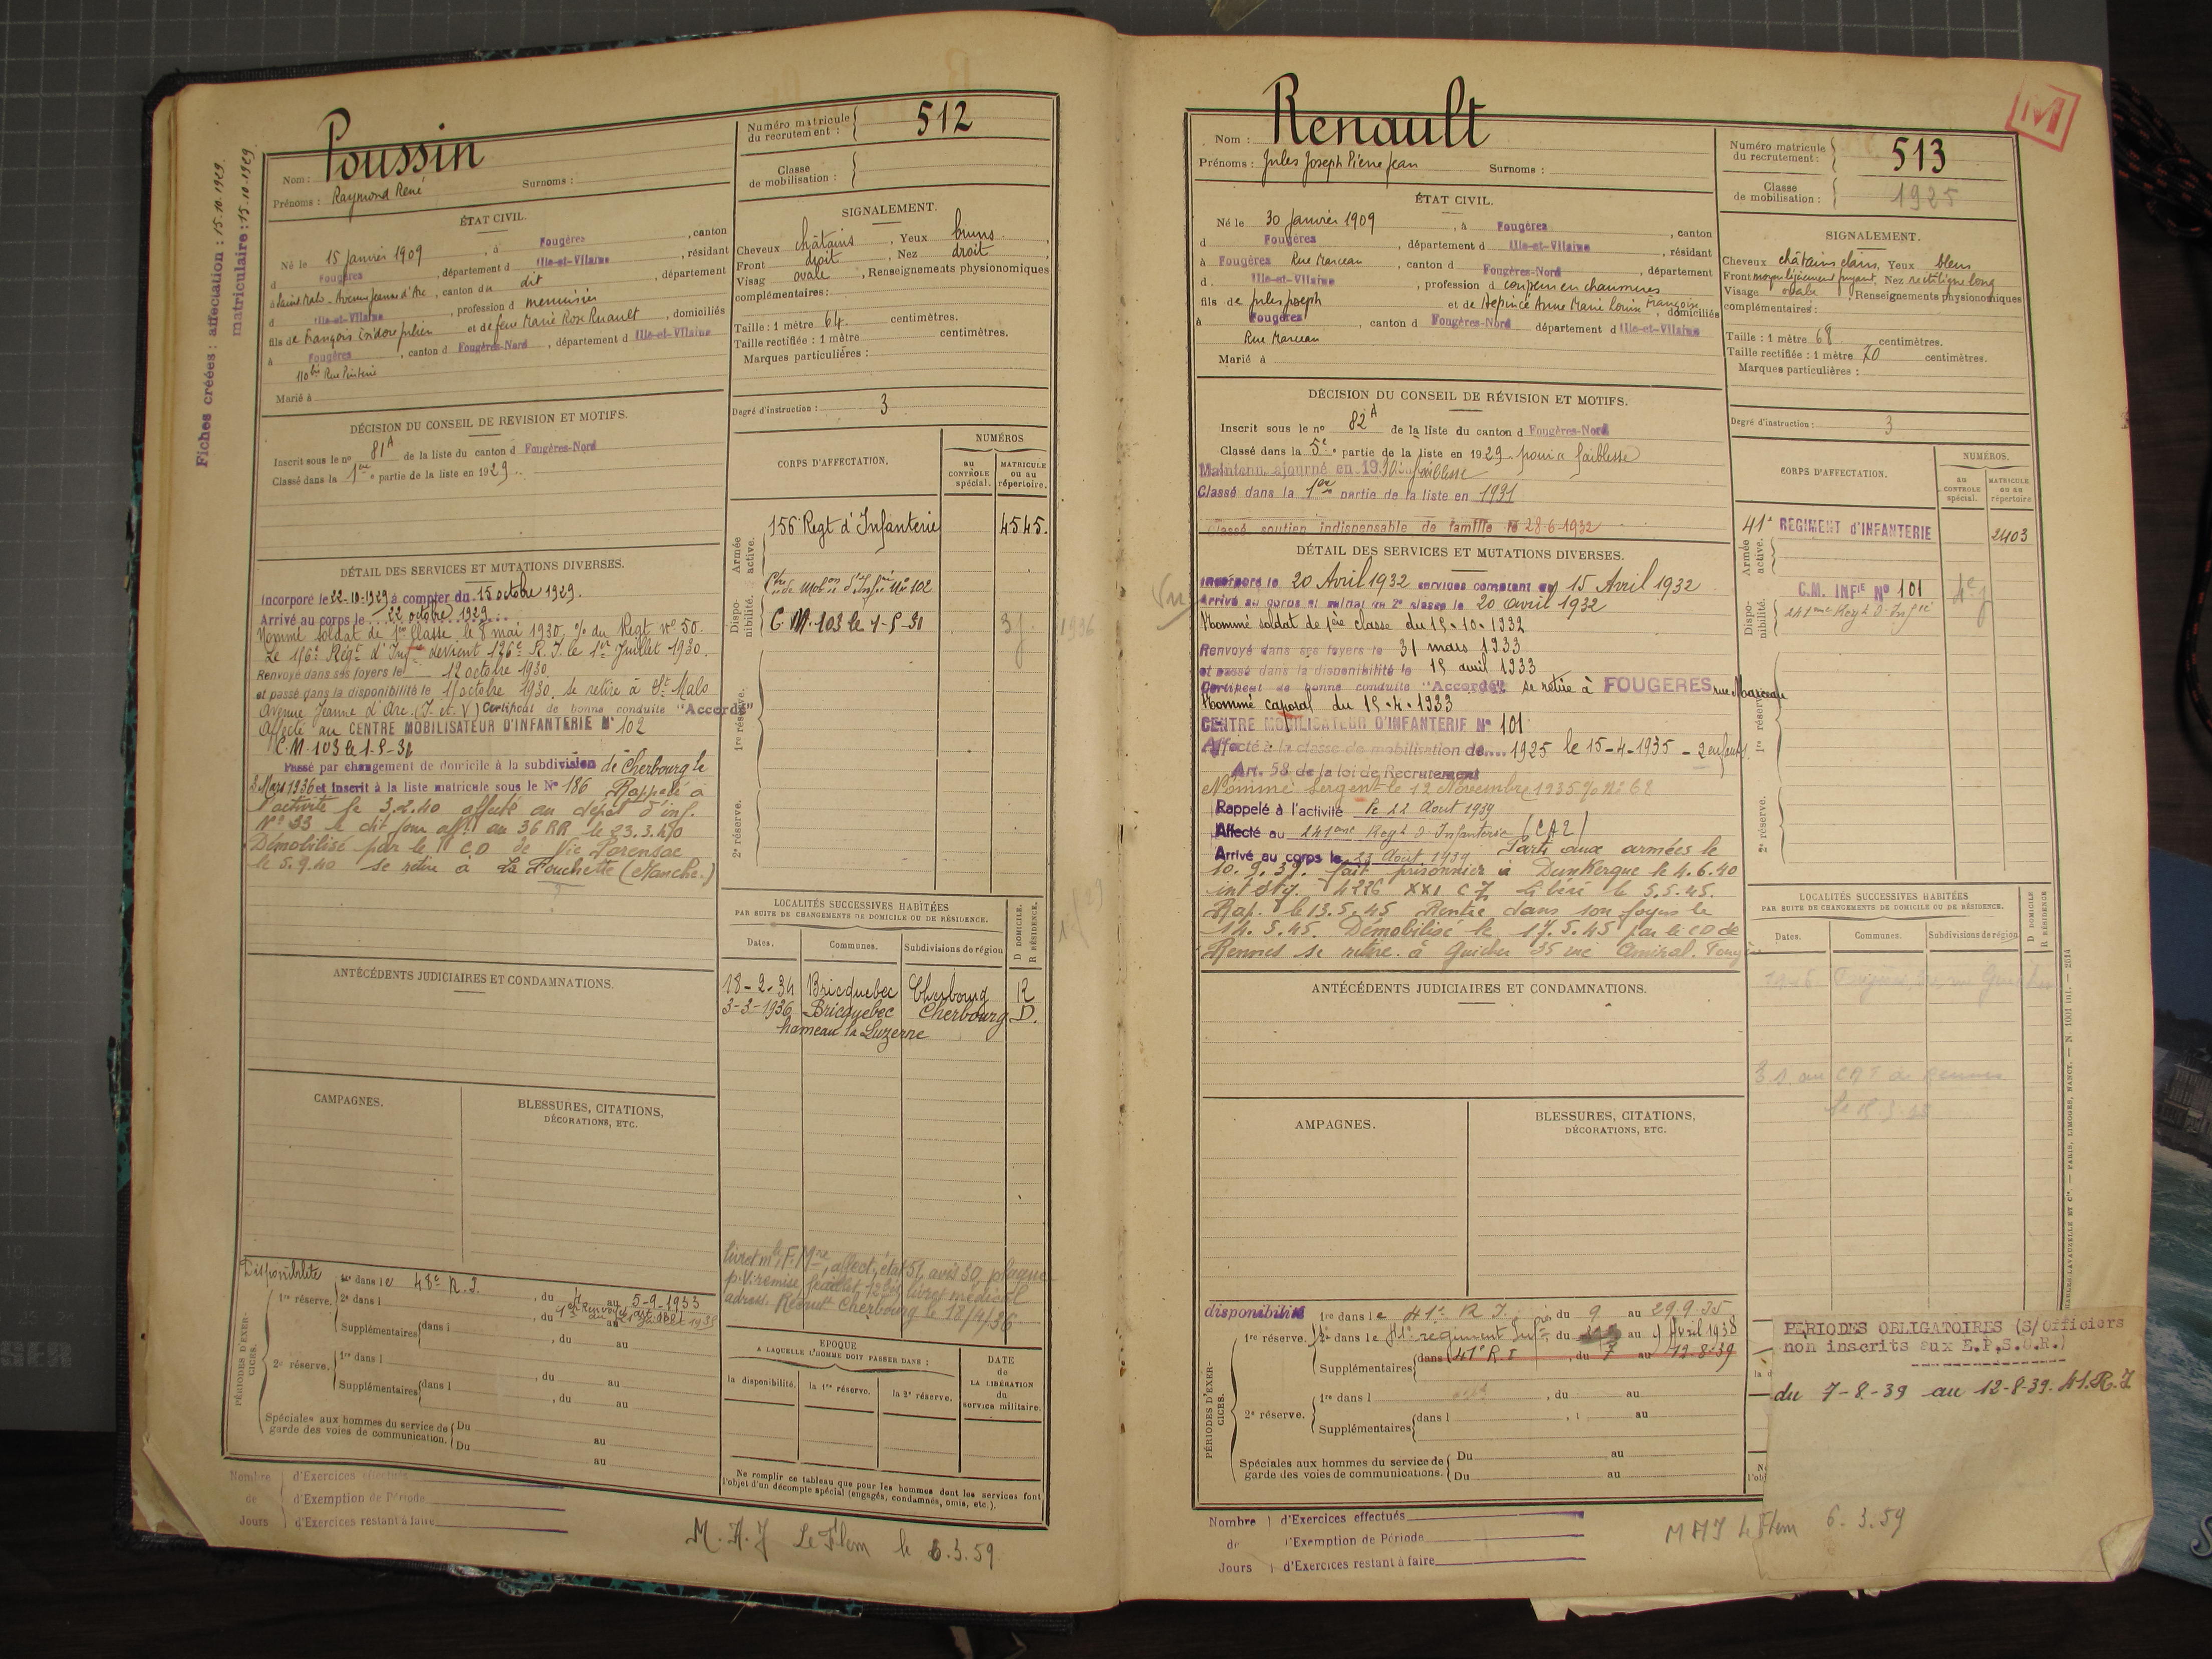 Fiches créées : affectation : 15.10.1929.
matriculaire : 15.10.1929.
Nom : Poussin
Prénoms : Raymond René Surnoms :
Numéro matricule du recrutement : 512
Classe de mobilisation :
ÉTAT CIVIL.
Né le 15 janvier 1909, à Fougères, canton
d Fougères, département d Ille-et-Vilaine, résidant
à Saint Malo - Avenue Jeanne d'Arc, canton du dit, département
d Ille-et-Vilaine, profession d menuisier
fils de François Isidore Julien et de feue Marie Rose Ruault, domiciliés
à Fougères, canton d Fougères-Nord, département d Ille-et-Vilaine
110 bis Rue Pinterie
Marié à
SIGNALEMENT.
Cheveux châtains, Yeux bruns,
Front droit, Nez droit,
Visag ovale, Renseignements physionomiques
complémentaires :
Taille : 1 mètre 64 centimètres.
Taille rectifiée : 1 mètre centimètres.
Marques particulières :
Degré d'instruction : 3
DÉCISION DU CONSEIL DE REVISION ET MOTIFS.
Inscrit sous le nº 81 A de la liste du canton d Fougères-Nord
Classé dans la 1ère partie de la liste en 1929.
CORPS D'AFFECTATION.
NUMÉROS
AU CONTRÔLE spécial.
MATRICULE ou au répertoire.
Armée active.
156 Regt d'Infanterie 4545.
Disponibilité.
Ctre de Mobon d'Infrie Nº 102
C.M. 103 le 1-5-31 3j.
1936
1re réserve.
2e réserve.
DÉTAIL DES SERVICES ET MUTATIONS DIVERSES.
Incorporé le 22-10-1929 à compter du 15 octobre 1929.
Arrivé au corps le 22 octobre 1929
Nommé soldat de 1re Classe le 8 mai 1930, % du Regt nº 50.
Le 156e Régt d'Infie devient 126e R.I. le 1er Juillet 1930.
Renvoyé dans ses foyers le 12 octobre 1930
et passé dans la disponibilité le 15 octobre 1930. Se retire à St Malo
Avenue Jeanne d'Arc. (I. et. V) Certificat de bonne conduite "Accordé"
Affecté au CENTRE MOBILISATEUR D'INFANTERIE Nº 102
C.M. 103 le 1-5-31
Passé par changement de domicile à la subdivision de Cherbourg le
3 Mars 1936 et inscrit à la liste matricule sous le Nº 186 Rappelé à
l'activité le 3.2.40 affecté au dépôt d'inf.
Nº 33 le dit jour aff. au 36 RR le 23.3.40
Démobilisé par le CD de Vic
le 5.9.40 se retire à La (Manche.)
LOCALITÉS SUCCESSIVES HABITÉES
PAR SUITE DE CHANGEMENTS DE DOMICILE OU DE RÉSIDENCE.
D DOMICILE. R RÉSIDENCE.
Dates. Communes. Subdivisions de région
18-2-34 Bricquebec Cherbourg R
3-3-1936 Bricquebec Cherbourg D.
hameau la Luzerne
ANTÉCÉDENTS JUDICIAIRES ET CONDAMNATIONS.
CAMPAGNES.
BLESSURES, CITATIONS,
DÉCORATIONS, ETC.
livret mle, F. Mre, affect., état 51, avis 30, plaque
p.v. remise, feuillet 12 bis, livret médical
adress. Recrut Cherbourg le 18/4/36
PÉRIODES D'EXERCICES.
Disponibilité 1re dans le 48e R.I., du 4 au 5-9-1933
1re réserve. 2e dans l, du au
Supplémentaires dans l, du au
2e réserve. 1re dans l, du au
Supplémentaires dans l, du au
Spéciales aux hommes du service de garde des voies de communication. Du au
Du au
EPOQUE
A LAQUELLE L'HOMME DOIT PASSER DANS :
la disponibilité. la 1re réserve. la 2e réserve.
DATE de LA LIBÉRATION du service militaire.
Ne remplir ce tableau que pour les hommes dont les services font
l'objet d'un décompte spécial (engagés, condamnés, omis, etc.).
Nombre de Jours
d'Exercices effectués
d'Exemption de Période
d'Exercices restant à faire
M. A. J Le Flem le 6.3.59
M
Nom : Renault
Prénoms : Jules Joseph Pierre Jean Surnoms :
Numéro matricule du recrutement : 513
Classe de mobilisation : 1925
ÉTAT CIVIL.
Né le 30 janvier 1909, à Fougères, canton
d Fougères, département d Ille-et-Vilaine, résidant
à Fougères Rue Marceau, canton d Fougères-Nord, département
d Ille-et-Vilaine, profession d coupeur en chaussures
fils de Jules Joseph et de Anne Marie Louise Françoise, domiciliés
à Fougères, canton d Fougères-Nord département d Ille-et-Vilaine
Rue Marceau
Marié à
SIGNALEMENT.
Cheveux châtains clairs, Yeux bleus
Front moyen légèrement fuyant, Nez rectiligne long
Visage ovale, Renseignements physionomiques
complémentaires :
Taille : 1 mètre 68 centimètres.
Taille rectifiée : 1 mètre 70 centimètres.
Marques particulières :
Degré d'instruction : 3
DÉCISION DU CONSEIL DE RÉVISION ET MOTIFS.
Inscrit sous le nº 82 A de la liste du canton d Fougères-Nord
Classé dans la 5e partie de la liste en 1929 pour faiblesse
Maintenu ajourné en 1930 faiblesse
Classé dans la 1ère partie de la liste en 1931
Classé soutien indispensable de famille le 28-6-1932
CORPS D'AFFECTATION.
NUMÉROS.
AU CONTROLE spécial.
MATRICULE ou au répertoire
Armée active.
41e REGIMENT D'INFANTERIE 2403
Disponibilité.
C.M. INFie Nº 101
241ème Regt d'Infie
1re réserve.
2e réserve.
DÉTAIL DES SERVICES ET MUTATIONS DIVERSES.
Incorporé le 20 Avril 1932 services comptant du 15 Avril 1932
Arrivé au corps et soldat de 2e classe le 20 avril 1932
Nommé soldat de 1ère classe du 15-10-1932
Renvoyé dans ses foyers le 31 mars 1933
et passé dans la disponibilité le 15 avril 1933
Certificat de bonne conduite "Accordé" se retire à FOUGERES rue Marceau
Nommé caporal du 15-4-1933
CENTRE MOBILISATEUR D'INFANTERIE Nº 101
Affecté à la classe de mobilisation de.... 1925 le 15-4-1935 - 2 enfants
Art. 58 de la loi de Recrutement
Nommé Sergent le 12 Novembre 1935 % Nº 62
Rappelé à l'activité le 22 Aout 1939
Affecté au 241ème Regt d'Infanterie (CA2)
Arrivé au corps le 23 Aout 1939 Parti aux armées le
10.9.39. fait prisonnier à Dunkerque le 4.6.40
int. 4226 XXI C Libéré le 5.5.45.
Rap. le 13.5.45 Rentré dans son foyer le
14.5.45. Démobilisé le 17.5.45 par le CD de
Rennes se retire à 35 rue Amiral.
LOCALITÉS SUCCESSIVES HABITÉES
PAR SUITE DE CHANGEMENTS DE DOMICILE OU DE RÉSIDENCE.
D DOMICILE R RÉSIDENCE
Dates. Communes. Subdivisions de région
ANTÉCÉDENTS JUDICIAIRES ET CONDAMNATIONS.
AMPAGNES.
BLESSURES, CITATIONS,
DÉCORATIONS, ETC.
PÉRIODES D'EXERCICES.
disponibilité 1re dans le 41e R.I. du 9 au 29.9.35
1re réserve. 2e dans le 41e régiment Infie du au 9 Avril 1938
Supplémentaires dans 41e R.I, du 7 au 12-8-39
2e réserve. 1re dans l, du au
Supplémentaires dans l au
Spéciales aux hommes du service de garde des voies de communications. Du au
Du au
PERIODES OBLIGATOIRES (S/Officiers
non inscrits aux E.P.S.O.R.)
du 7-8-39 au 12-8-39. 41.R.I.
Nombre de Jours
d'Exercices effectués
d'Exemption de Période
d'Exercices restant à faire
M A J Le Flem 6.3.59